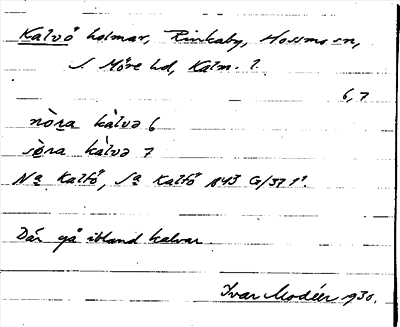 Kalvö holmar, Rinkaby, Hossmo sn,
S. Möre hd, Kalm. l.
6, 7
nòra kàlvə 6
sø̀ra kàlvə 7
Na Kalfö, Sa Kalfö 1843 G/37 1¹.
Där gå ibland kalvar.
Ivar Modéer 1930.